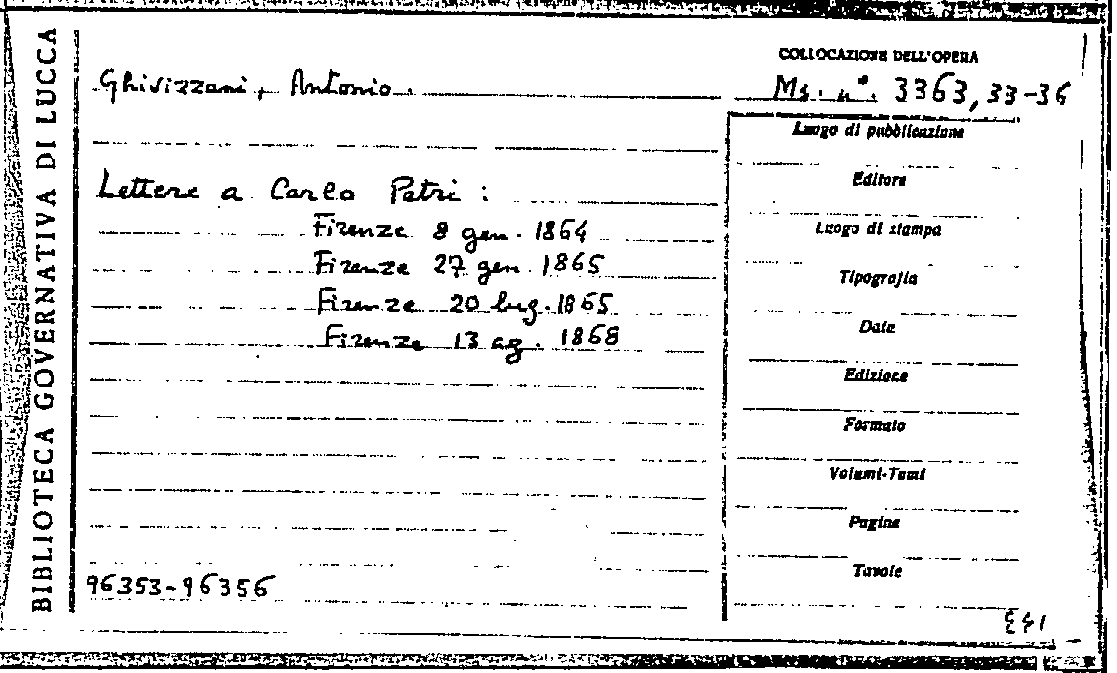 BIBLIOTECA GOVERNATIVA DI LUCCA
Ghivizzani, Antonio.
COLLOCAZIONE DELL'OPERA
Ms. n°. 3363, 33-36
Lettere a Carlo Petri:
Firenze 8 gen. 1864
Firenze 27 gen. 1865
Firenze 20 lug. 1865
Firenze 13 ag. 1868
96353-96356
Luogo di pubblicazione
Editore
Luogo di stampa
Tipografia
Data
Edizione
Formato
Volumi-Tomi
Pagine
Tavole